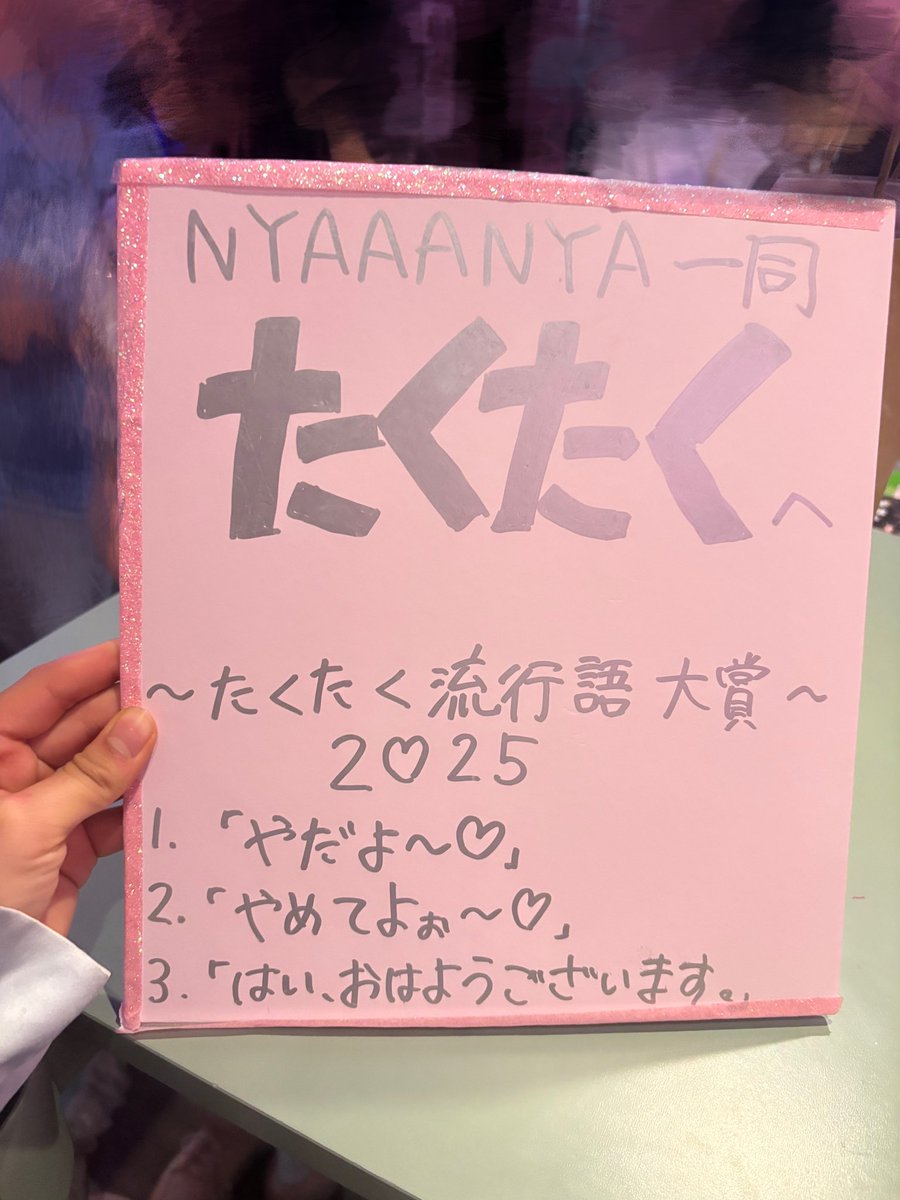 NYAAANYA一同
たくたくへ
～たくたく流行語大賞～
2♡25
1.「やだよ～♡」
2.「やめてよぉ～♡」
3.「はい、おはようございます。」